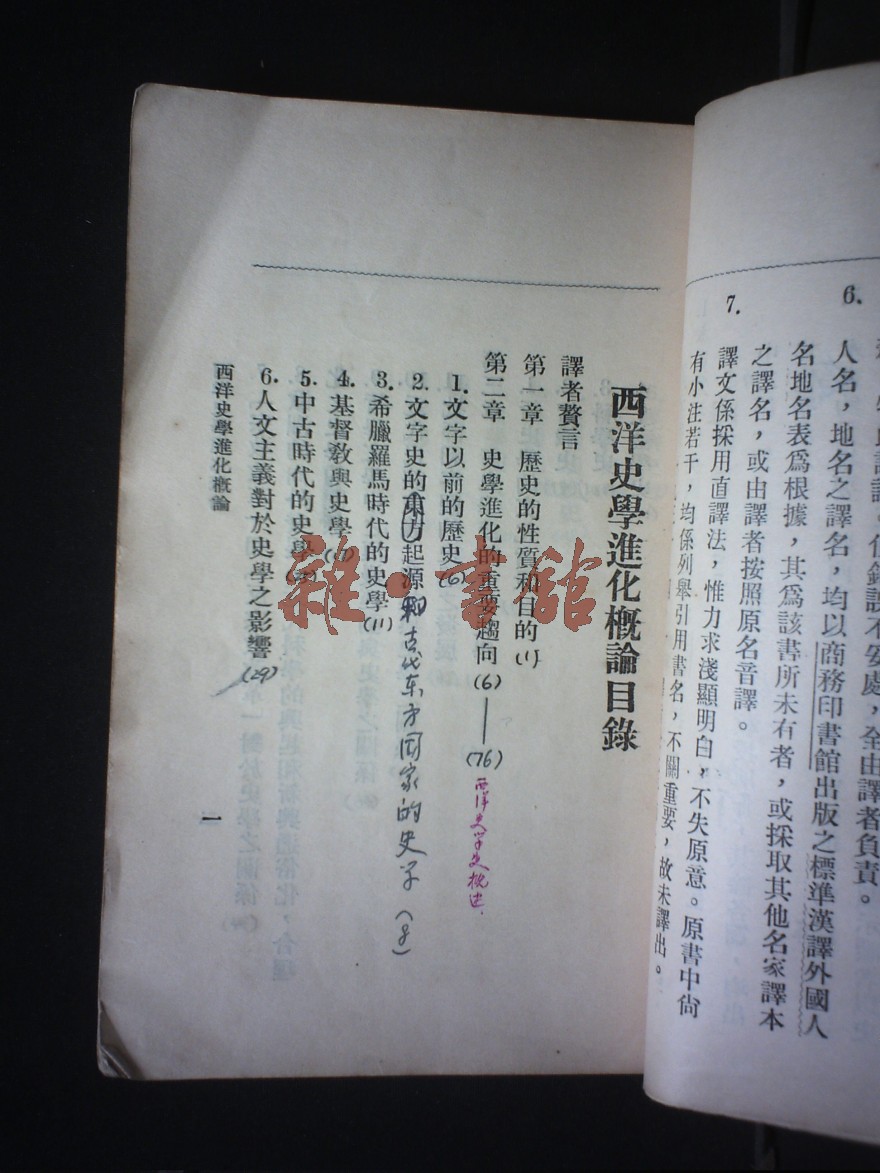 6.
人名，地名之譯名，均以商務印書館出版之標準漢譯外國人
名地名表爲根據，其爲該書所未有者，或採取其他名家譯本
之譯名，或由譯者按照原名音譯。
7.
譯文係採用直譯法，惟力求淺顯明白，不失原意。原書中尙
有小注若干，均係列舉引用書名，不關重要，故未譯出。
西洋史學進化概論目錄
譯者贅言
第一章 歷史的性質和目的(1)
第二章 史學進化的重要趨向(6)——(76)西洋史学史概述.
1.文字以前的歷史(6)
2.文字史的東方起源和古代东方国家的史学(8)
3.希臘羅馬時代的史學(11)
4.基督教與史學
5.中古時代的史學
6.人文主義對於史學之影響(29)
西洋史學進化概論
一
雜·書館